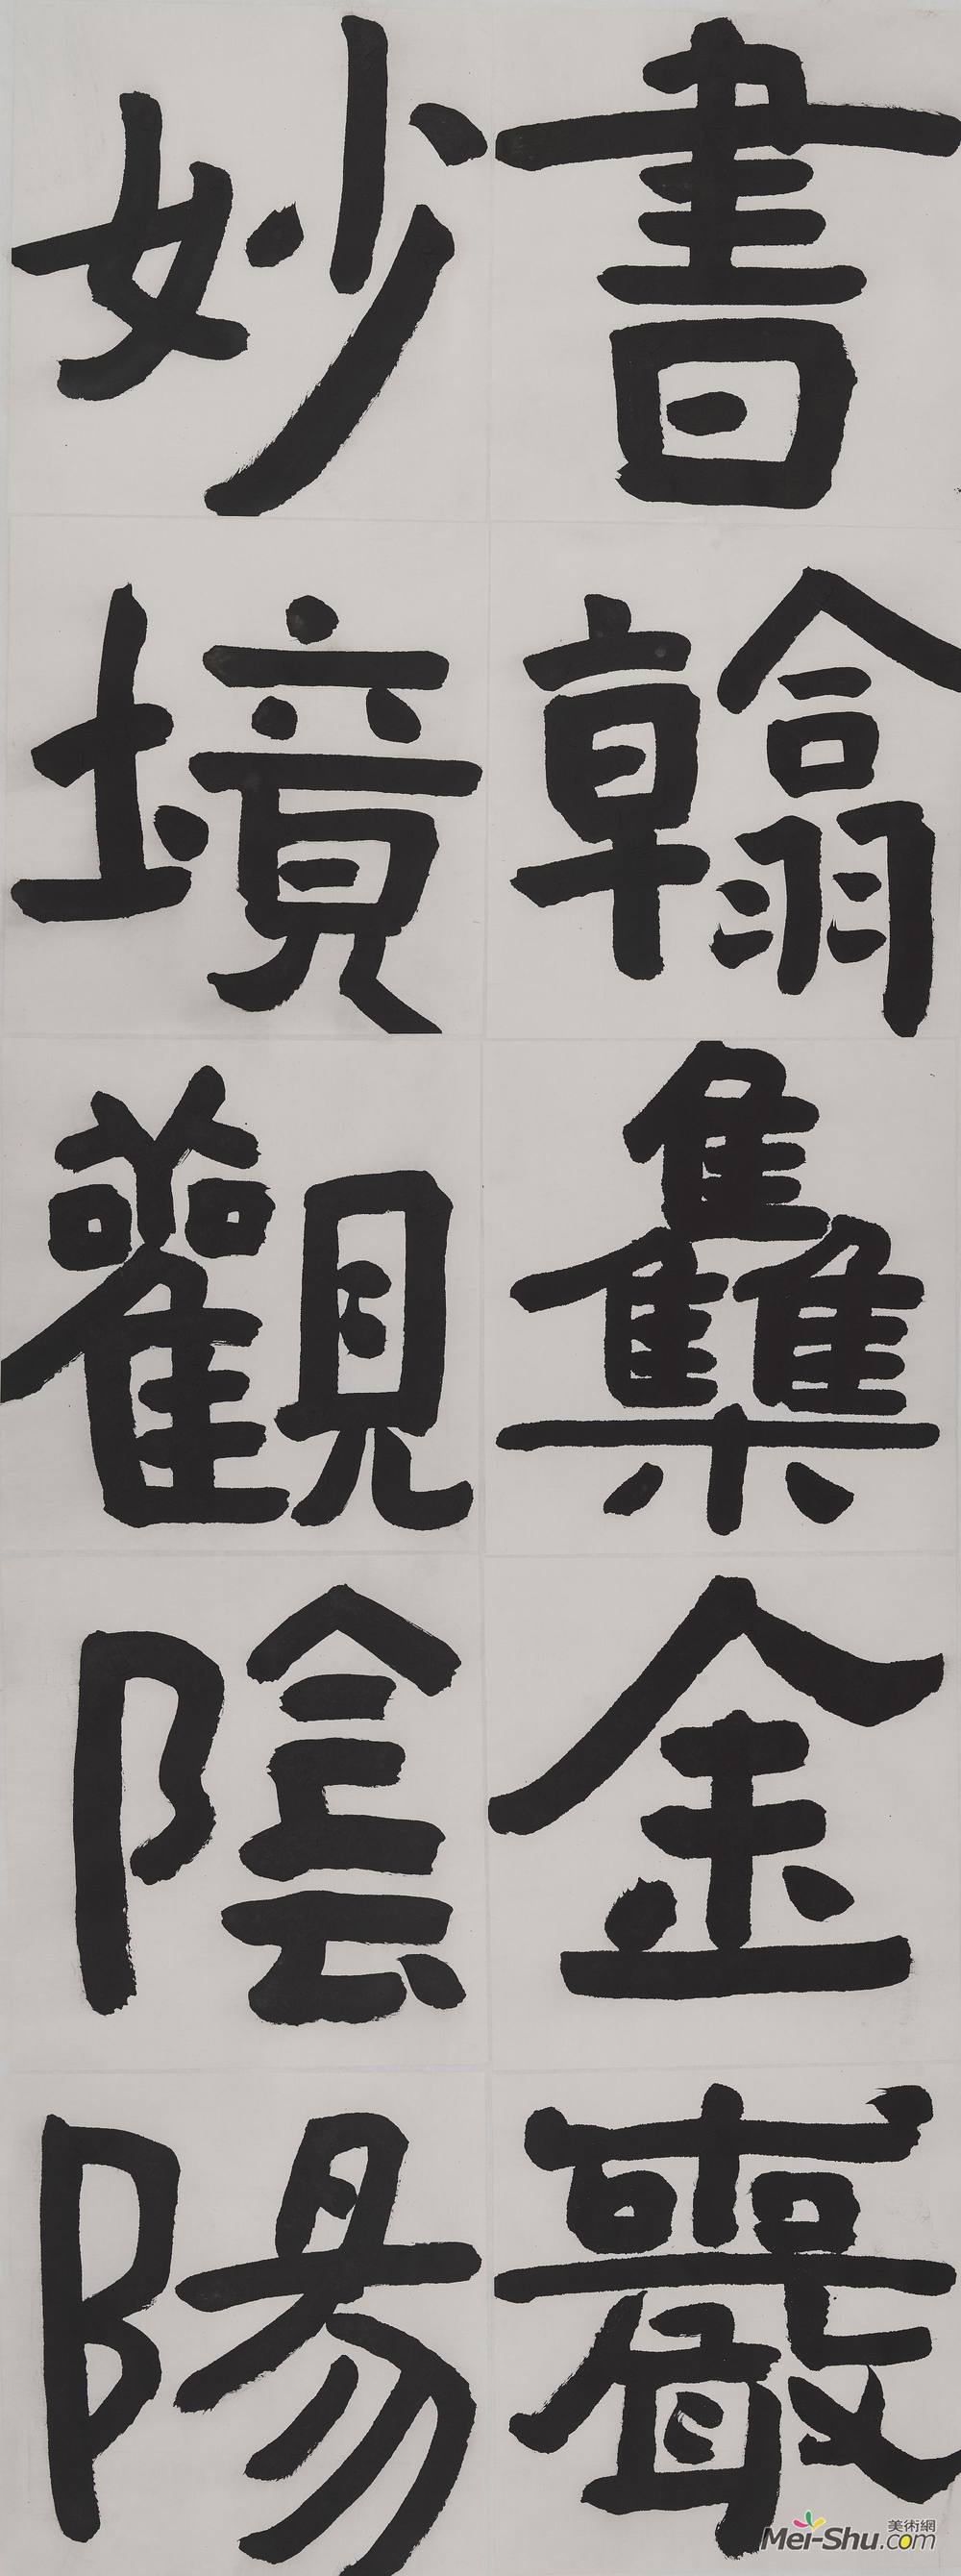 書翰雧金巖
妙境觀陰陽
美術網
Mei-Shu.com